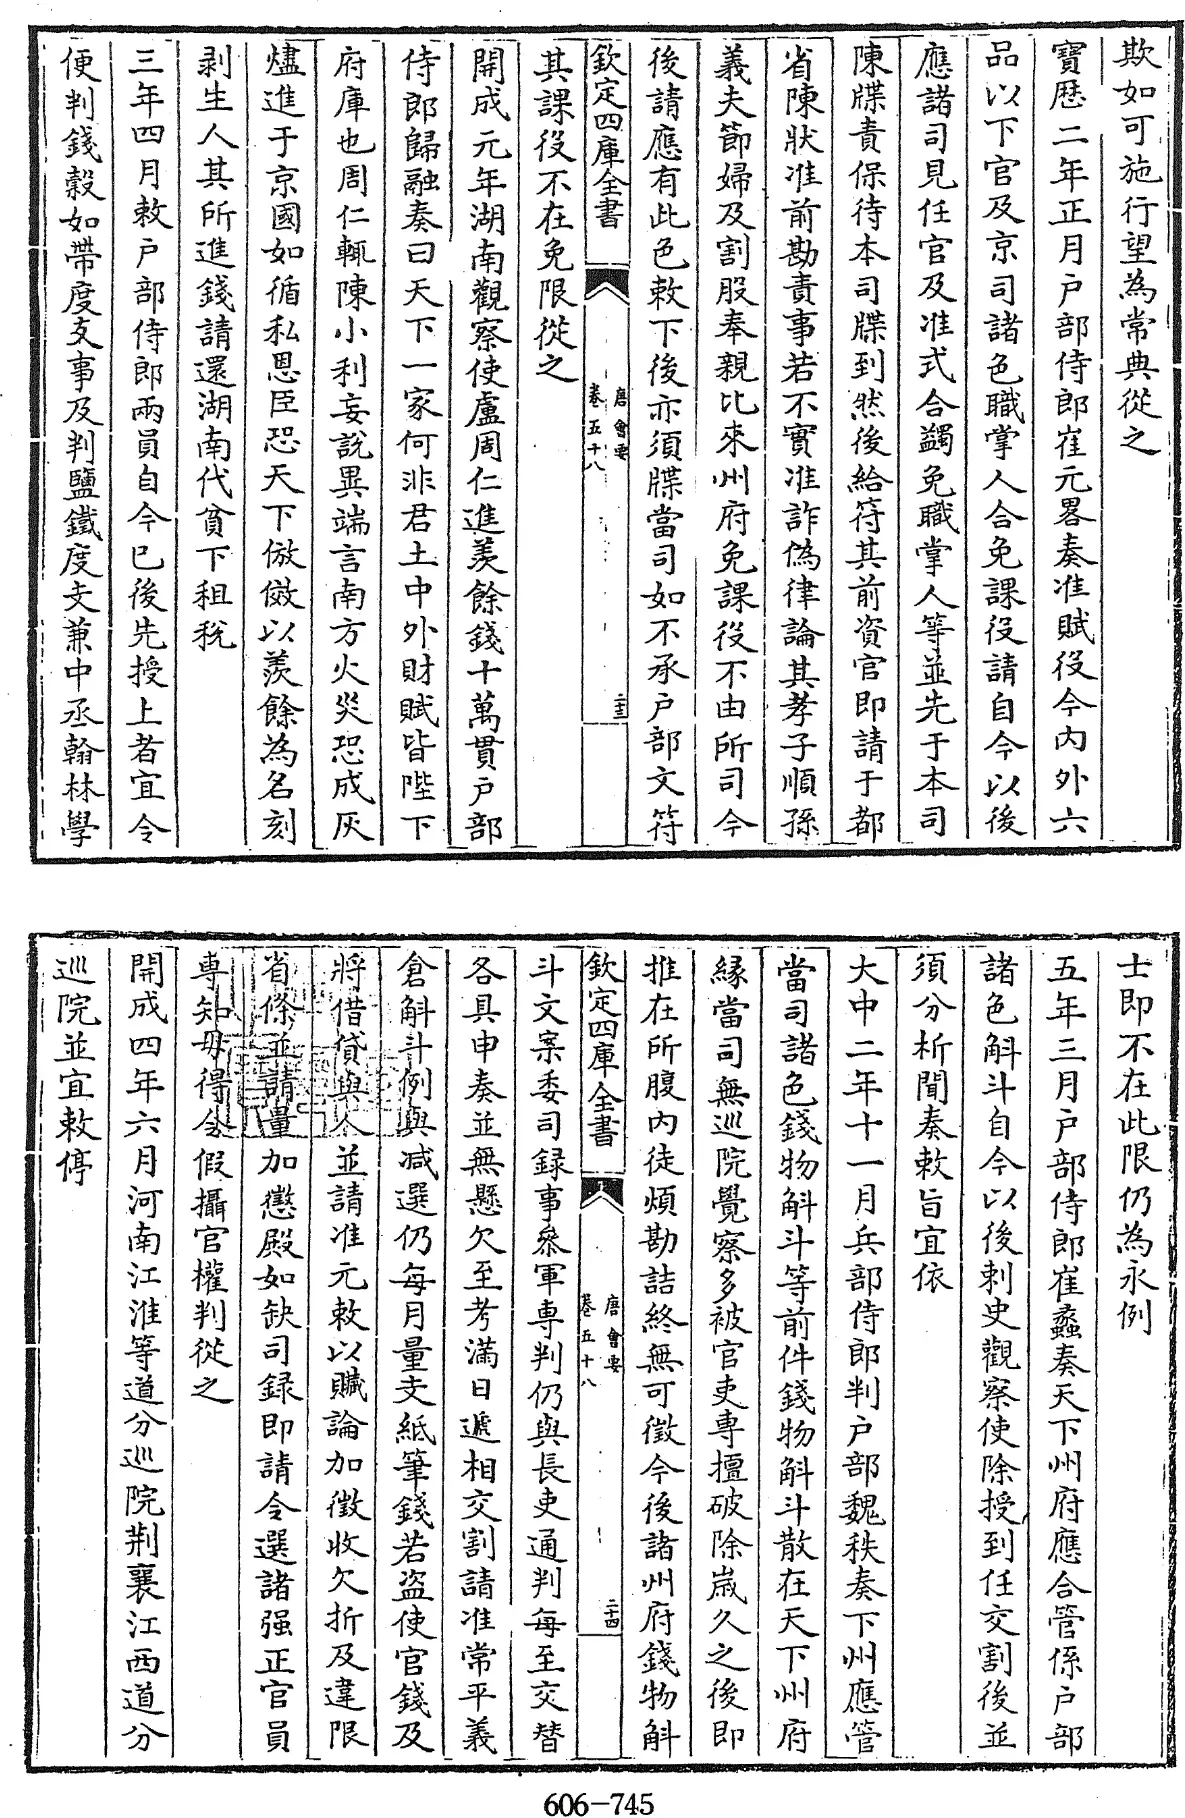 欺如可施行望為常典從之
寶歴二年正月户部侍郎崔元畧奏准賦役今内外六
品以下官及京司諸色職掌人合免課役請自今以後
應諸司見任官及准式合蠲免職掌人等並先于本司
陳牒責保待本司牒到然後給符其前資官即請于都
省陳狀准前勘責事若不實准詐偽律論其孝子順孫
義夫節婦及割股奉親比來州府免課役不由所司今
後請應有此色敕下後亦須牒當司如不承户部文符
欽定四庫全書
唐會要
卷五十八
二十三
其課役不在免限從之
開成元年湖南觀察使盧周仁進羡餘錢十萬貫户部
侍郎歸融奏曰天下一家何非君土中外財賦皆陛下
府庫也周仁輒陳小利妄説異端言南方火災恐成灰
燼進于京國如循私恩臣恐天下倣傚以羨餘為名刻
剥生人其所進錢請還湖南代貧下租稅
三年四月敕户部侍郎兩員自今已後先授上者宜令
便判錢穀如帶度支事及判鹽鐵度支兼中丞翰林學
士即不在此限仍為永例
五年三月户部侍郎崔蠡奏天下州府應合管係户部
諸色斛斗自今以後刺史觀察使除授到任交割後並
須分析聞奏敕旨宜依
大中二年十一月兵部侍郎判户部魏秩奏下州應管
當司諸色錢物斛斗等前件錢物斛斗散在天下州府
緣當司無巡院覺察多被官吏專擅破除歳久之後即
推在所腹内徒煩勘詰終無可徵今後諸州府錢物斛
欽定四庫全書
唐會要
卷五十八
二十四
斗文案委司録事參軍専判仍與長吏通判每至交替
各具申奏並無懸欠至考滿日遞相交割請准常平義
倉斛斗例與减選仍每月量支紙筆錢若盗使官錢及
將借貸與人並請准元敕以贓論加徵收欠折及違限
省條並請量加懲殿如缺司録即請令選諸强正官員
専知毋得令假攝官權判從之
開成四年六月河南江淮等道分巡院荆襄江西道分
巡院並宜敕停
606-745